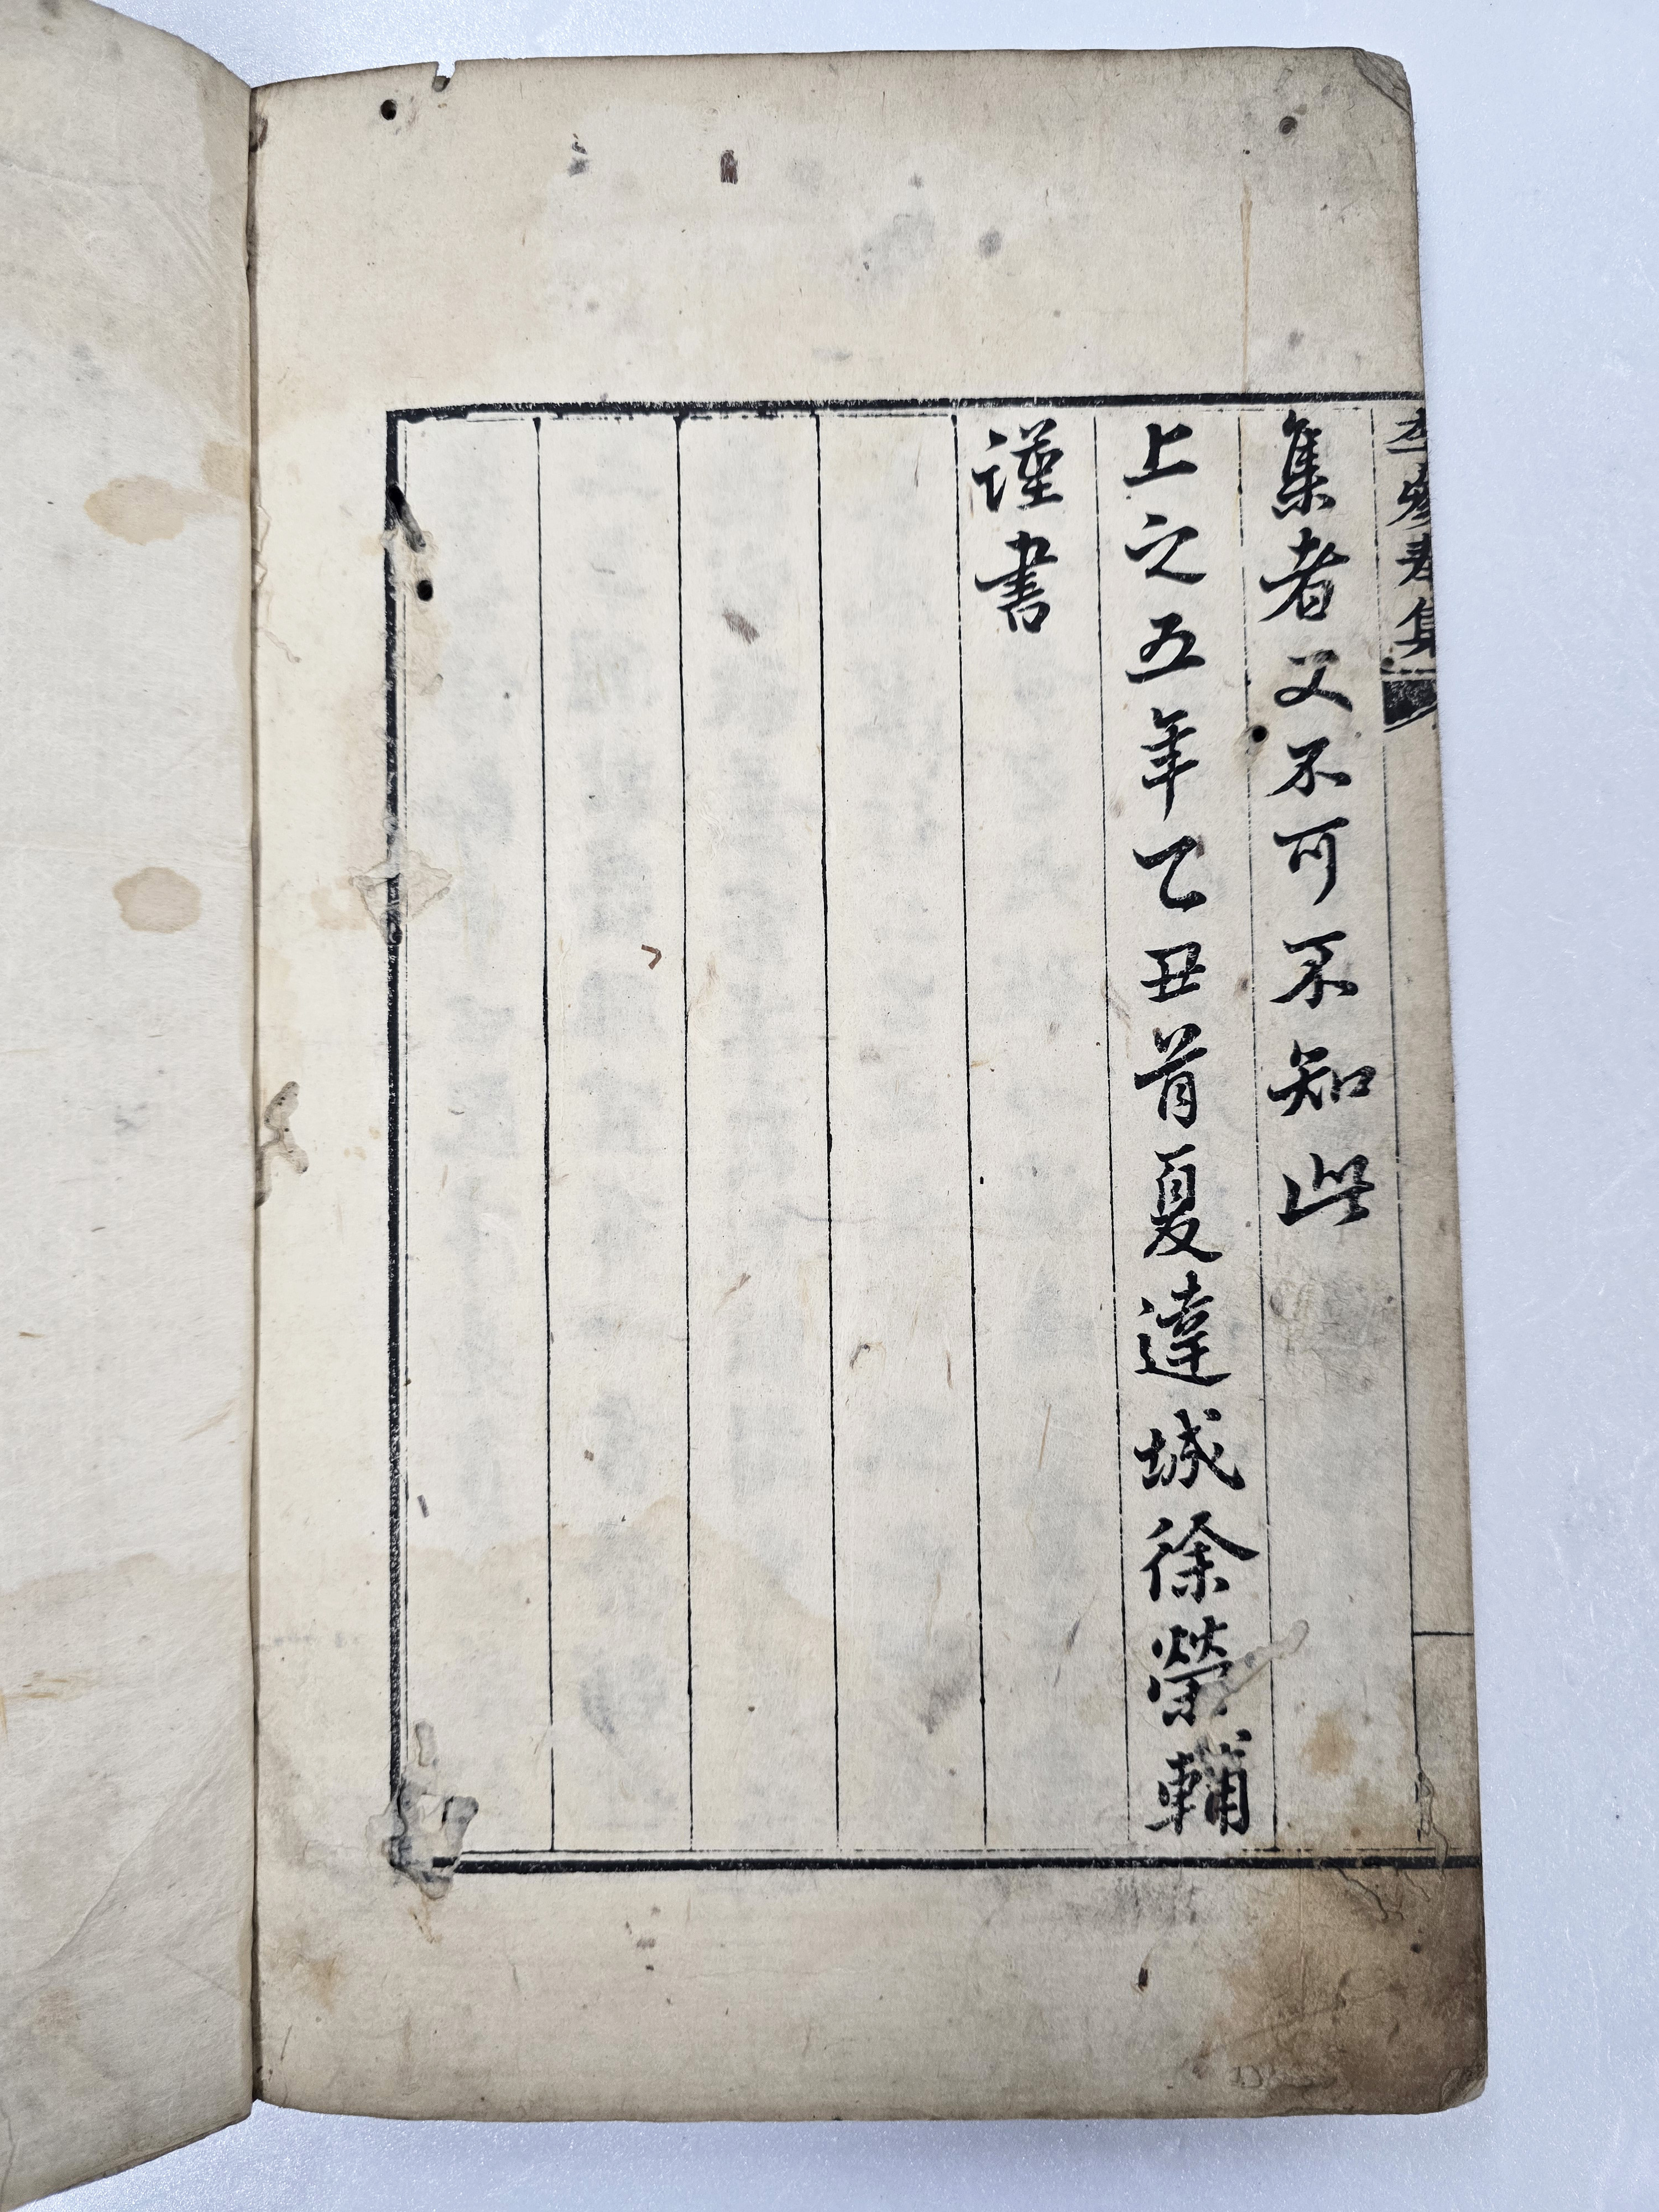 李參奉集
集者又不可不知此
上之五年乙丑首夏達城徐榮輔
謹書